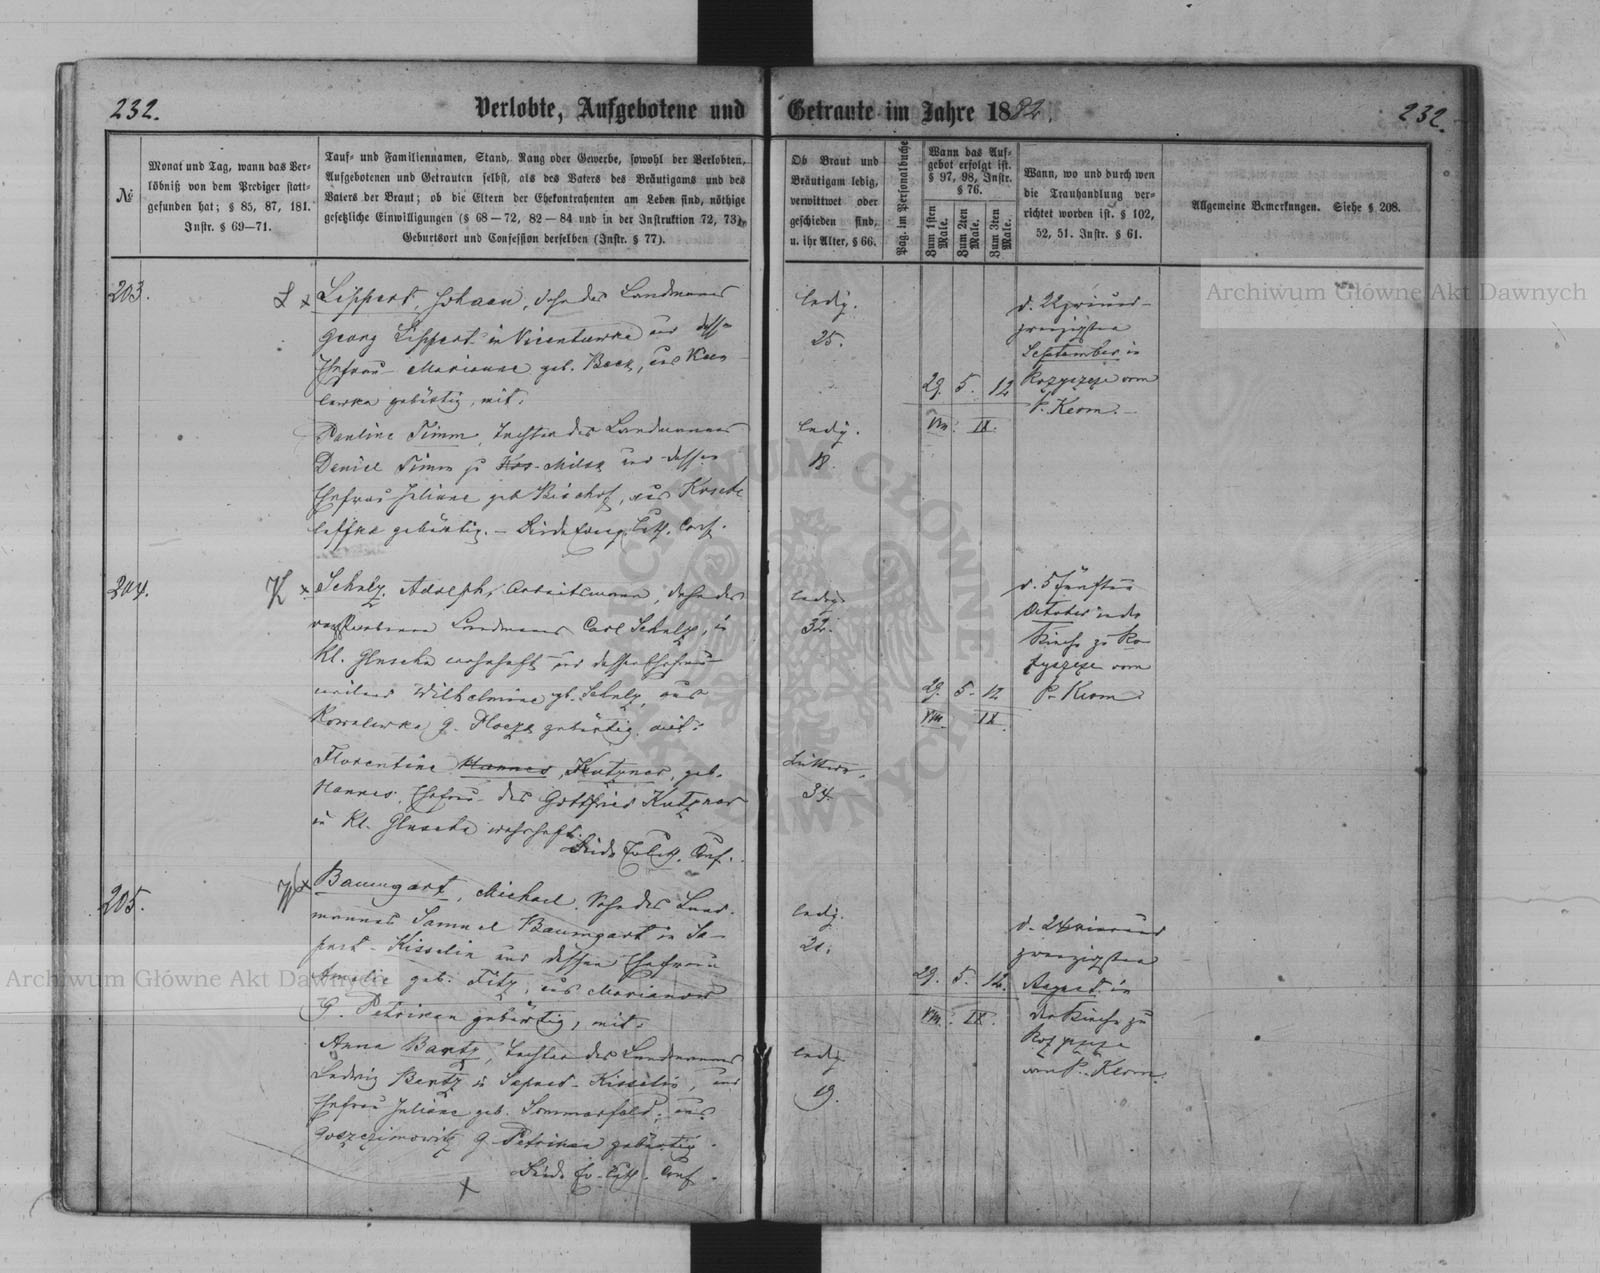 232.
Verlobte, Aufgebotene und
Getraute im Jahre 1882.
232.
№
Monat und Tag, wann das Ver-
löbniß von dem Prediger statt-
gefunden hat; § 85, 87, 181.
Instr. § 69—71.
Tauf- und Familiennamen, Stand, Rang oder Gewerbe, sowohl der Verlobten,
Aufgebotenen und Getrauten selbst, als des Vaters des Bräutigams und des
Vaters der Braut; ob die Eltern der Ehekontrahenten am Leben sind, nöthige
gesetzliche Einwilligungen (§ 68—72, 82—84 und in der Instruktion 72, 73),
Geburtsort und Confession derselben (Instr. § 77).
Ob Braut und
Bräutigam ledig,
verwittwet oder
geschieden sind,
u. ihr Alter, § 66.
Pag. im Personalbuche
Wann das Auf-
gebot erfolgt ist.
§ 97, 98, Instr.
§ 76.
Zum 1sten Male.
Zum 2ten Male.
Zum 3ten Male.
Wann, wo und durch wen
die Trauhandlung ver-
richtet worden ist. § 102,
52, 51. Instr. § 61.
Allgemeine Bemerkungen. Siehe § 208.
203.
L x
Lippert, Johann, Sohn des Landmanns
Georg Lippert in Vicentuwka und
Ehefrau Marianne geb. Beck, aus
gebürtig, mit:
Pauline Timm, Tochter des Landmannes
Daniel Timm zu Kos-Milsk und dessen
Ehefrau Juliane geb. Bischof, aus
gebürtig. — Beide Evang. Luth. Conf.
ledig.
25.
ledig.
18.
29. 5. 12
VIII. IX.
d. 22 zweiund-
zwanzigsten
September in
Rozyszcze vom
P. Kerm.
204.
K x
Schulz, Adolph, Arbeitsmann, Sohn des
verstorbenen Landmanns Carl Schulz, in
Kl. Gluscha wohnhaft und dessen Ehefrau
weiland Wilhelmine gb. Schulz, aus
Kowalewka G. Plozk gebürtig, mit:
Florentine Hannes, Kutzner, geb.
Hannes, Ehefrau des Gottfried Kutzner
in Kl. Gluscha wohnhaft.
Beide Ev Luth. Conf.
ledig.
32.
34.
29. 5. 12
VIII. IX.
d. 5 fünften
October in der
Kirche zu Ro-
zyszcze vom
P. Kerm.
205.
x
Baumgart, Michael, Sohn des Land-
mannes Samuel Baumgart in Sa-
pust-Kisselin und dessen Ehefrau
Amalie geb. Titz, aus Marianow
G. Petrikau gebürtig, mit:
Anna Bartz, Tochter des Landmannes
Ludwig Bartz in Sapust-Kisselin, und
Ehefrau Juliane geb. Sommerfeld, aus
G. Petrikau gebürtig.
Beide Ev. Luth. Conf.
x
ledig.
21.
ledig.
19.
29. 5. 12.
VIII. IX.
d. 24 vierund
zwanzigsten
August in
der Kirche zu
Rozyszcze
vom P. Kerm.
Archiwum Główne Akt Dawnych
Archiwum Główne Akt Dawnych
ARCHIWUM GŁÓWNE AKT DAWNYCH